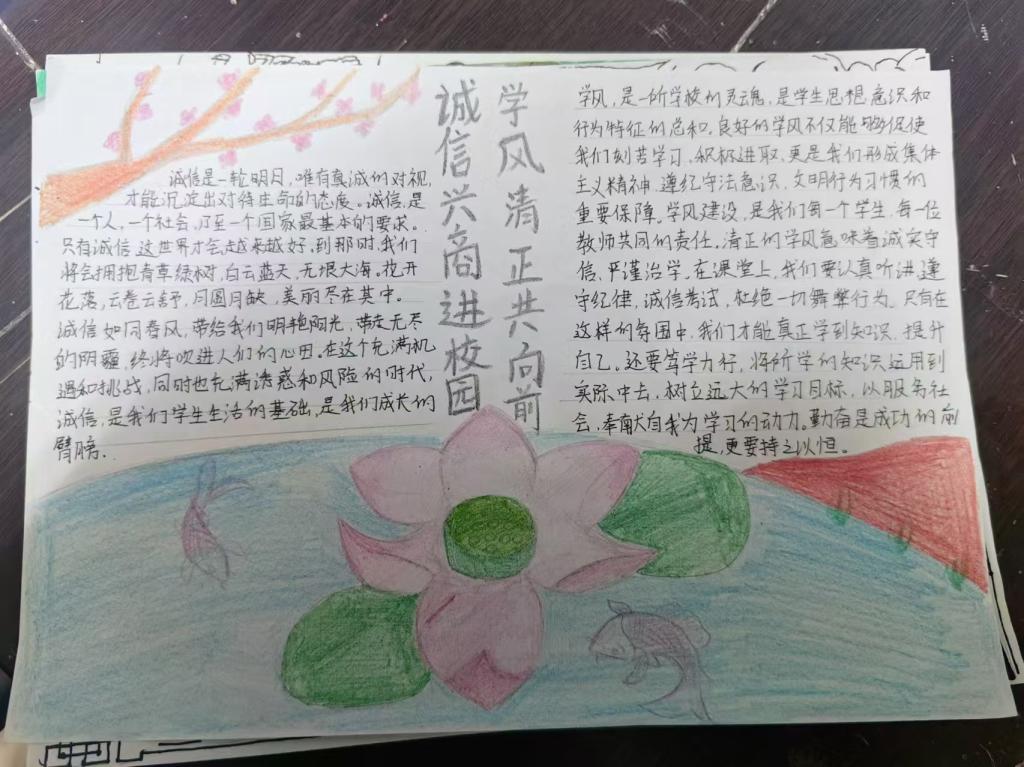 诚信兴商进校园
学风清正共向前
诚信是一轮明日，唯有真诚的对视，
才能沉淀出对待生命的态度。诚信，是
一个人，一个社会，乃至一个国家最基本的要求。
只有诚信，这世界才会越来越好，到那时，我们
将会拥抱青草绿树，白云蓝天，无垠大海，花开
花落，云卷云舒，月圆月缺，美丽尽在其中。
诚信如同春风，带给我们明艳阳光，带走无尽
的阴霾，终将吹进人们的心田。在这个充满机
遇和挑战，同时也充满诱惑和风险的时代，
诚信，是我们学生生活的基础，是我们成长的
臂膀.
学风，是一所学校的灵魂，是学生思想意识和
行为特征的总和。良好的学风不仅能够促使
我们刻苦学习，积极进取，更是我们形成集体
主义精神，遵纪守法意识，文明行为习惯的
重要保障。学风建设，是我们每一个学生，每一位
教师共同的责任。清正的学风意味着诚实守
信，严谨治学。在课堂上，我们要认真听讲，遵
守纪律，诚信考试，杜绝一切舞弊行为。只有在
这样的氛围中，我们才能真正学到知识，提升
自己。还要笃学力行，将所学的知识运用到
实际中去，树立远大的学习目标，以服务社
会，奉献自我为学习的动力。勤奋是成功的前
提，更要持之以恒。